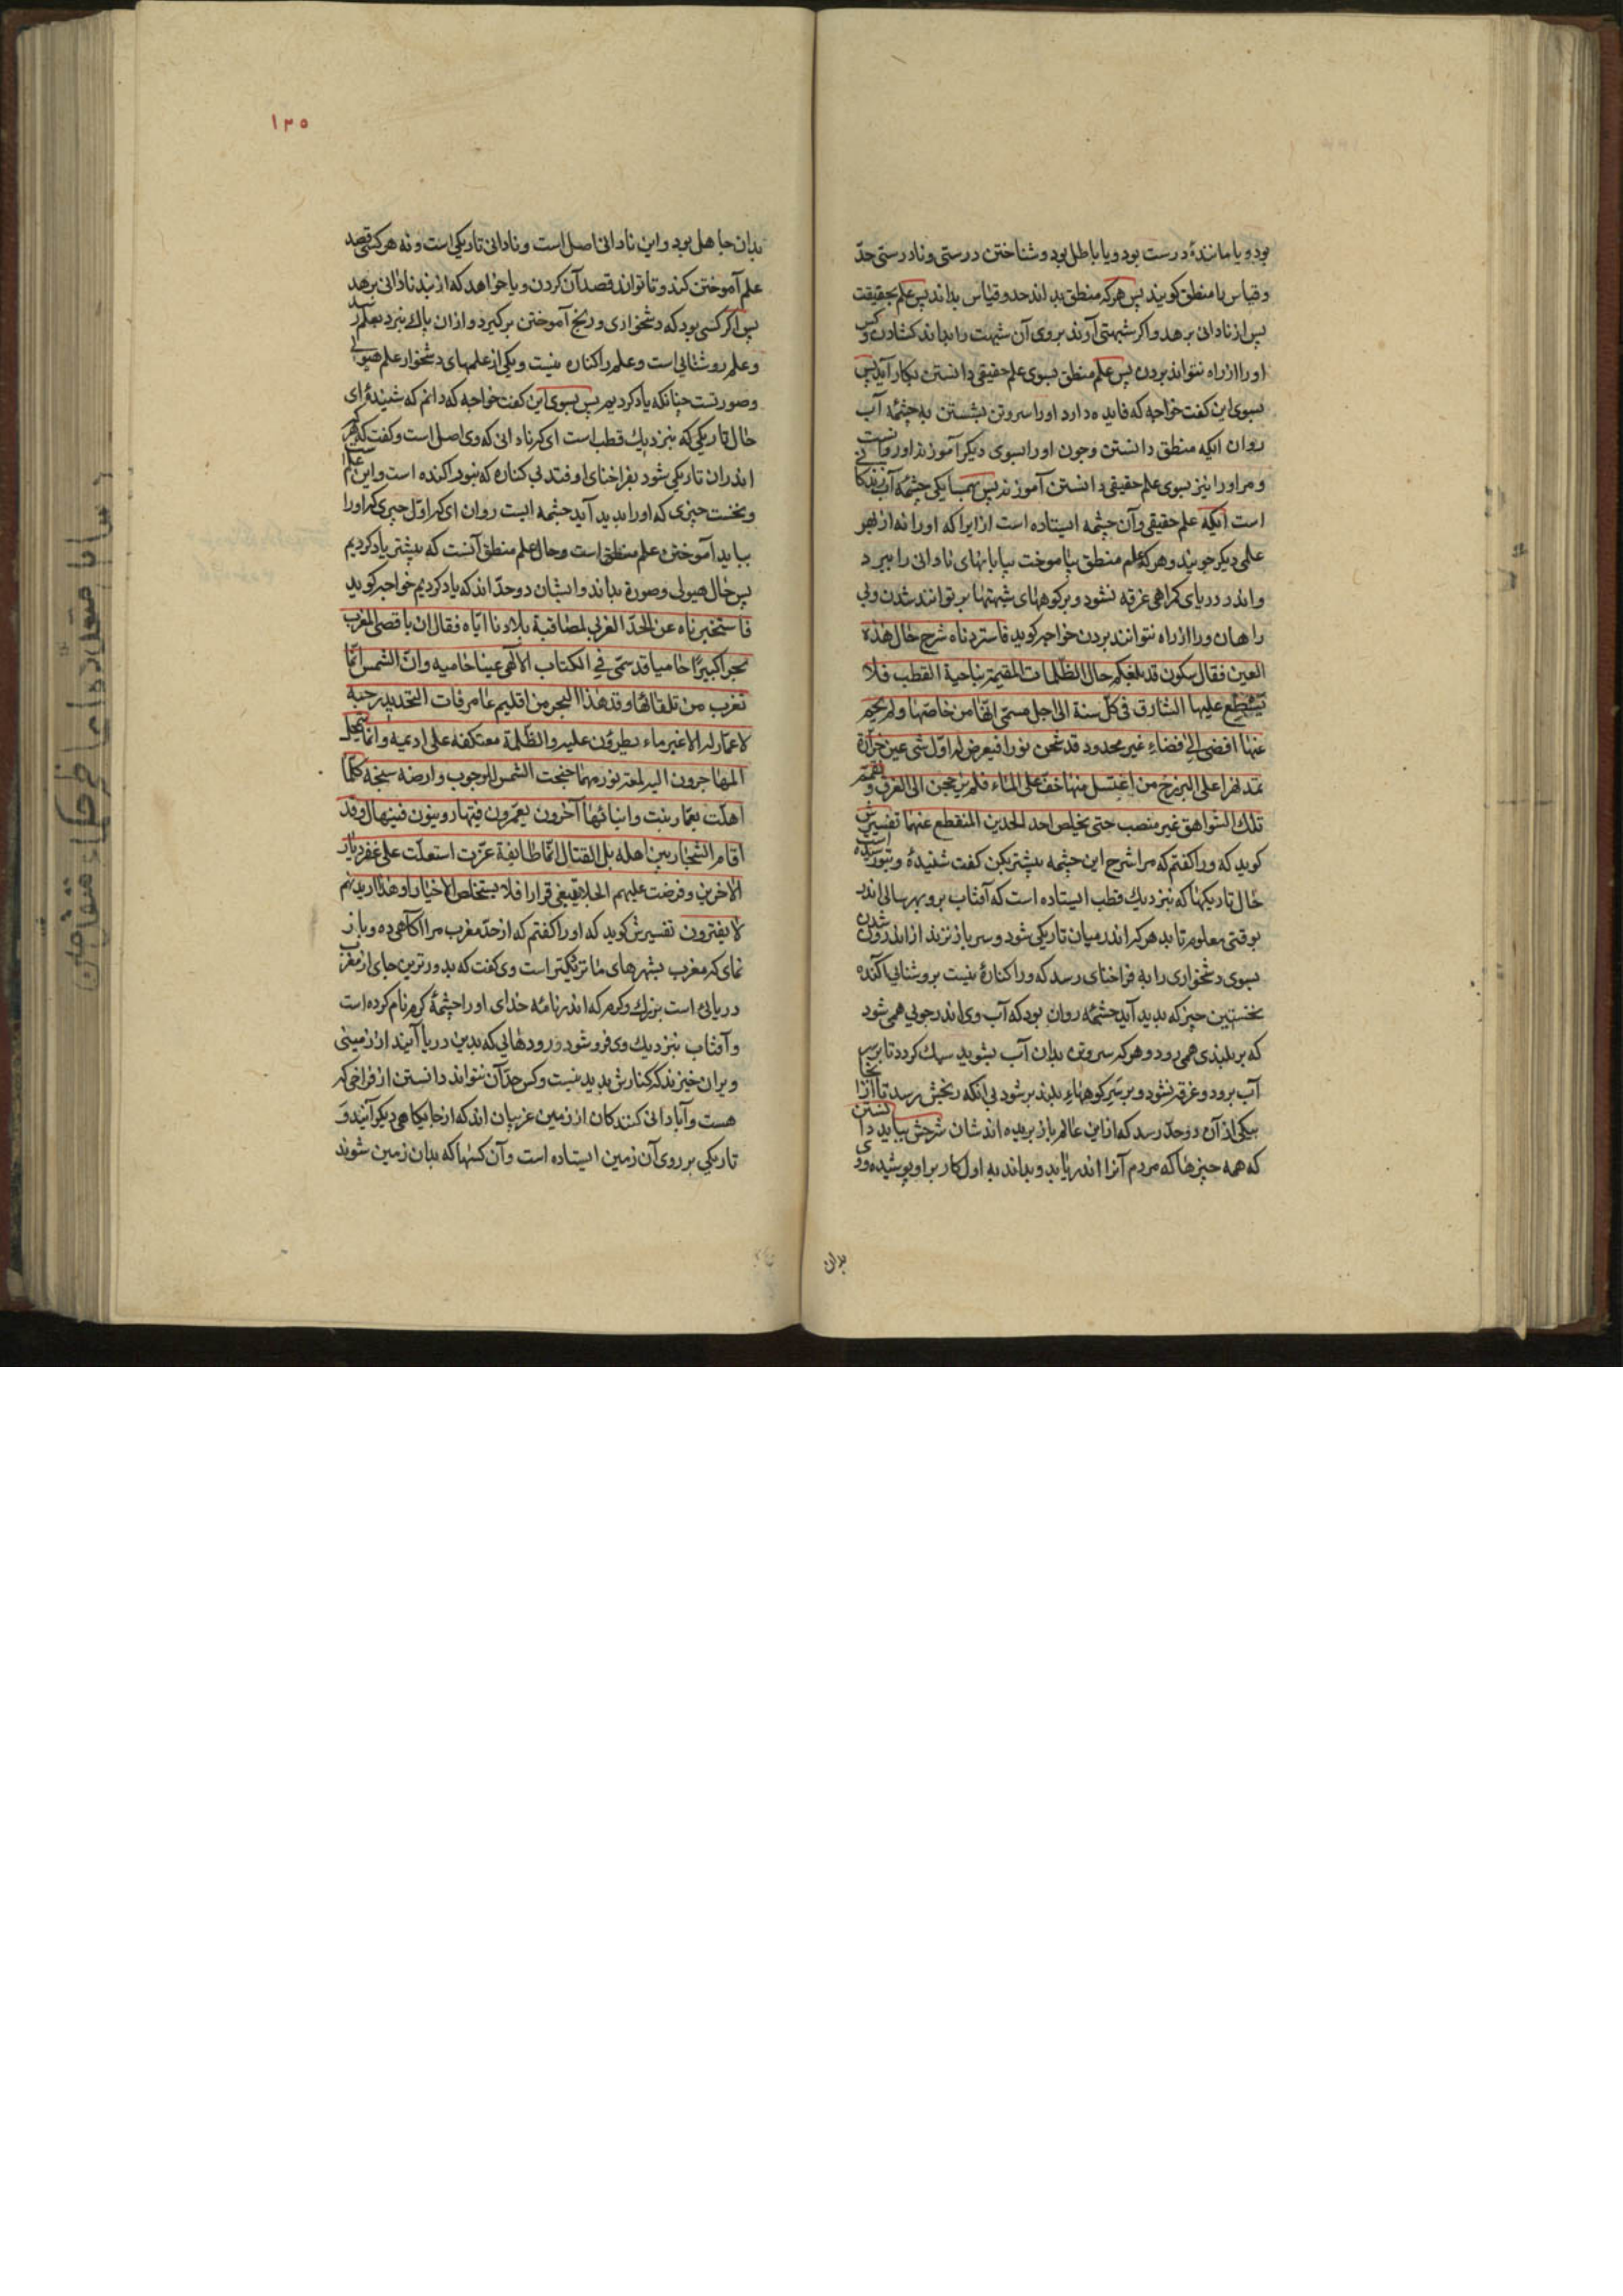 بود و یا مانندهٔ درست بود و یا باطل بود و شناختن درستی و نادرستی حدّ
و قیاس با منطق کویند پس هرکه منطق بداند حد و قیاس بداند پس علم بحقیقت
پس از نادانی برهد و اکر شبهتی آورند بروی آن شبهت را بداند کشادن و کس
اورا از راه نتواند بردن پس علم منطق بسوی علم حقیقی دانستن بکار آید پس
بسوی این کفت خواجه که فایده دارد اورا سروتن بشستن به چشمهٔ آب
روان ایکه منطق دانستن وچون اورا بسوی دیکر آموزند اورا
ومر اورا نیز بسوی علم حقیقی دانستن آموزند پس همسایکی چشمهٔ آب زندکانی
است ایکه علم حقیقی وآن چشمه ایستاده است ازایرا که اورا نه از بهر
علمی دیکر جویند وهرکه علم منطق بیاموخت بیابانهای نادانی را ببرد
واندر دریای کمراهی غرقه نشود وبرکوههای شبهتها بر توانند شدن وبی
راهان ورا از راه نتوانند بردن خواجه کوید فاستردناه شرح حال هذه
العین فقال سیکون قد بلغکم حال الظلمات المقیمة بناحیة القطب فلا
یستطع علیها الشارق فی کلّ سنة الی اجل مسمّی انّه من خاضها ولم یحجم
عنها افضی الی فضاء غیر محدود قد شحن نورا فیعرض له اوّل شی عین خرّارة
تمد نهرا علی البرزخ من اغتسل منها خفّ علی الماء فلم یرجحن الی الغرق و تقمّم
تلک الشواهق غیر منصب حتی یخلص احد الحدین المنقطع عنها تفسیرش
کوید که ورا کفتم که مرا شرح این چشمه بیشتر بکن کفت شنیدهٔ وبتو رسیده است
حال تاریکیها که بنزدیک قطب ایستاده است که آفتاب برو بهر سالی اندر
بوقتی معلوم تابد هرکه اندر میان تاریکی شود وسر باز نزند از اندرون شدن
بسوی دشخواری را به فراخنای رسد که ورا کنارهٔ نیست بروشنایی آکنده
نخستین چیز که بدید آید چشمهٔ روان بود که آب وی اندر جویی همی شود
که بر بلندی همی رود وهرکه سروتن بدان آب بشوید سبک کردد تا بر سر
آب برود وغرقه نشود وبر سر کوههاء بلند بر شود بی آنکه رنجش رسد تا از آنجا
بیکی از آن دو حدّ رسد که از این عالم باز بریده اند شان شرحش بباید دانستن
که همه چیزها که مردم آنرا اندر یابد وبداند به اول کار بر او پوشیده بود وی
بدان
۱۳۵
بدان جاهل بود واین نادانی اصل است ونادانی تاریکی است ونه هرکسی قصد
علم آموختن کند وتا تواند قصد آن کردن ویا خواهد که از بند نادانی برهد
پس اکر کسی بود که دشخواری ورنج آموختن برکیرد وازان باک نبرد بعلم رسد
وعلم روشنایی است وعلم را کناره نیست ویکی از علمهای دشخوار علم هیولی
وصورتست چنانکه یاد کردیم پس بسوی این کفت خواجه که دانم که شنیدهٔ برای
حال تاریکی که بنزدیک قطب است ای که نادانی که وی اصل است وکفت که هر که
اندران تاریکی شود بفراخنای اوفتد بی کناره که بنور آکنده است واین علم است
ونخست چیزی که اورا بدید آید چشمه ایست روان ای که اوّل چیزی که اورا
بباید آموختن علم منطق است وحال علم منطق آنست که بیشتر یاد کردیم
پس حال هیولی وصورة بداند وایشان دو حدّ اند که یاد کردیم خواجه کوید
فاستخبرناه عن الحدّ الغربی لمصاقبة بلادنا ایّاه فقال ان باقصی المغرب
بحرا کبیرًا حامیا قد سمّی فی الکتاب الالهی عینا حامیه وانّ الشمس انّما
تغرب من تلقائها و مدّ هذا البحر من اقلیم غامر فات التحدید رحبه
لا عمّار له الا غرباء یطرؤن علیه والظلمة معتکفة علی ادیمه وانّما یتمحّل
المهاجرون الیه لمعة نور مهما جنحت الشمس للوجوب وارضه سبخة کلّما
اهلت بعمّار نبت وابنائها آخرون یعمّرون فینهار ویبنون فینهال وقد
اقام الشجار بین اهله بل القتال انّما طائفة عزّت استعلت علی عقر دیار
الآخرین وفرضت علیهم الجلاء یبغی قرارا فلا یستخلص الا خسارا وهذا دیدنهم
لا یفترون تفسیرش کوید که اورا کفتم که از حدّ مغرب مرا آکاهی ده وباز
نمای که مغرب بشهرهای ما نزدیکتر است وی کفت که بدورترین جای از مغرب
دریائی است بزرک وکرم که اندر نامهٔ خدای اورا چشمهٔ کرم نام کرده است
وآفتاب بنزدیک وی فرو شود ورودهائی که بدین دریا آیند از زمینی
ویران خیزند که کنارش بدید نیست وکس حدّ آن نتواند دانستن از فراخی که
هست وآبادانی کنندکان از زمین غریبان اند که از جایکاهی دیکر آیند و
تاریکی بر روی آن زمین ایستاده است وآن کسها که بدان زمین شوند